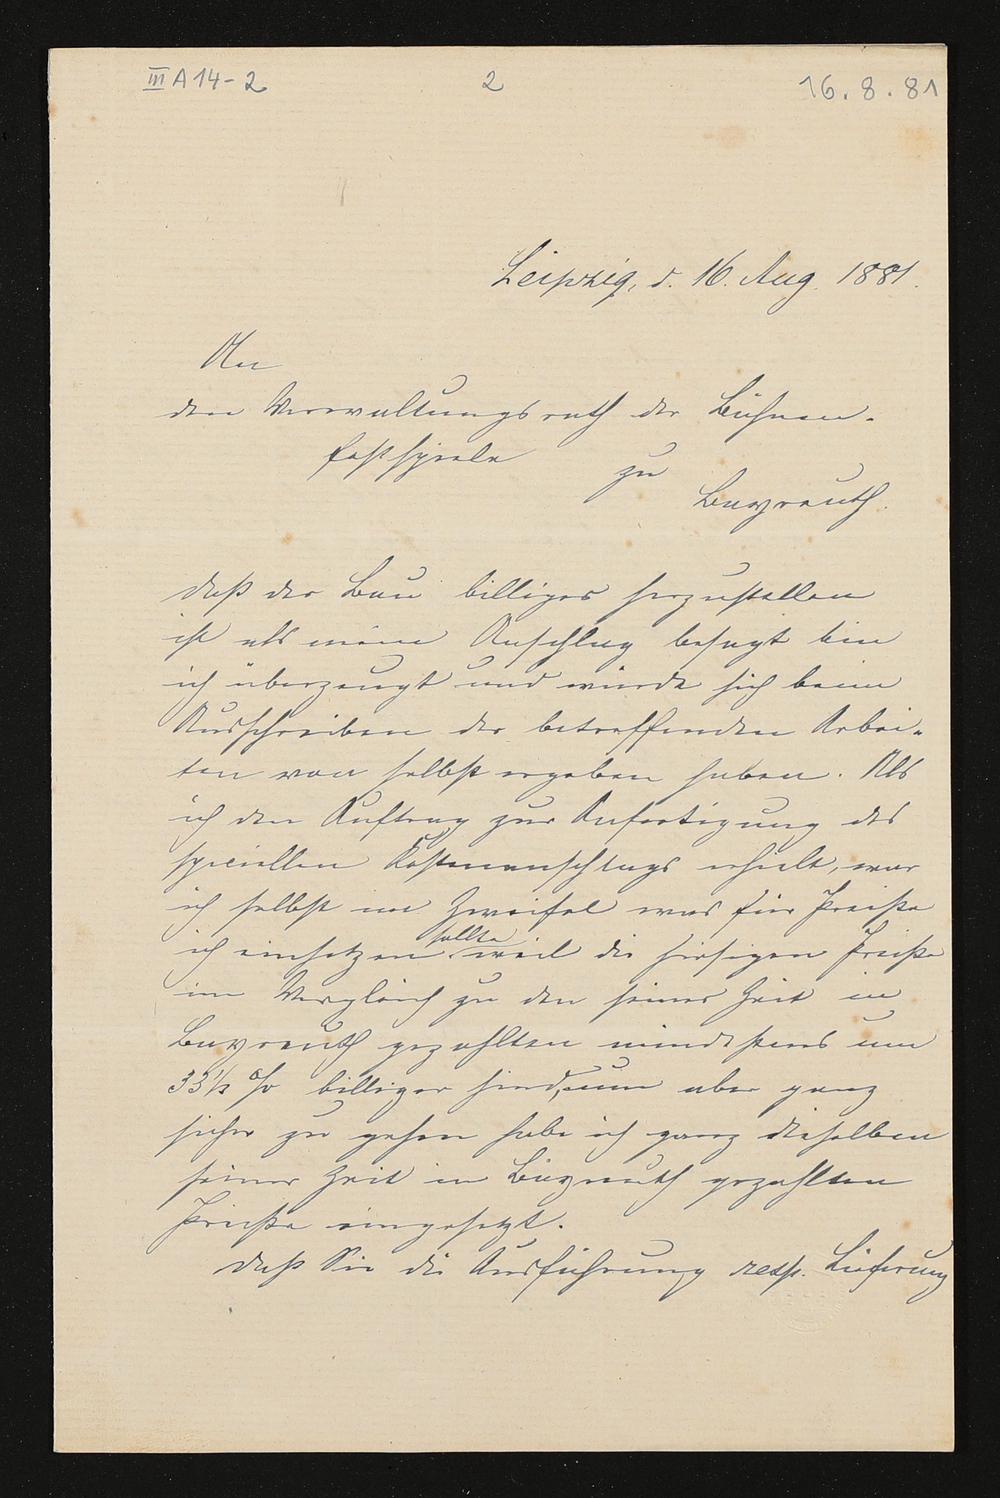 III A 14-2 2 16.8.81
Leipzig, d. 16. Aug. 1881.
An
den Verwaltungsrath der Bühnen-
festspiele zu
Bayreuth.
Daß der Bau billiger herzustellen
ist als mein Anschlag besagt bin
ich überzeugt und würde sich beim
Ausschreiben der betreffenden Arbei-
ten von selbst ergeben haben. Als
ich den Auftrag zur Anfertigung des
speciellen Kostenanschlags erhielt, war
ich selbst im Zweifel was für Preiße
ich einsetzen sollte weil die hiesigen Preiße
im Vergleich zu den seiner Zeit in
Bayreuth gezahlten mindestens um
33 1/3 % billiger sind, um aber ganz
sicher zu gehen habe ich ganz dieselben
seiner Zeit in Bayreuth gezahlten
Preiße eingesetzt.
Daß Sie die Ausführung resp. Lieferung